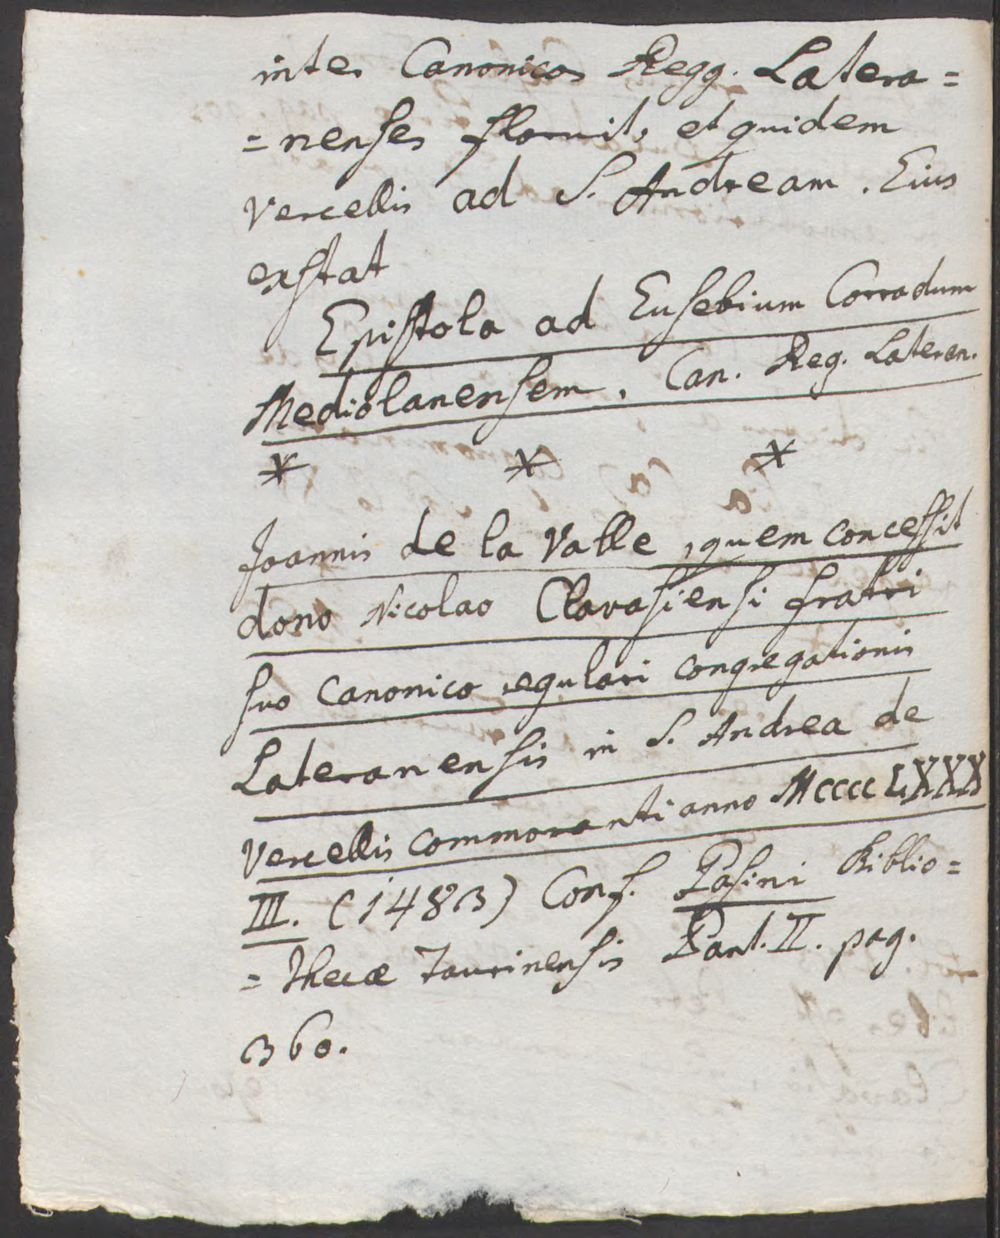 inter Canonicos Regg. Latera=
=nenses floruit, et quidem
Vercellis ad S. Andream. Eius
exstat
Epistola ad Eusebium Corradum
Mediolanensem. Can. Reg. Lateran.
* * *
Joannis de la Valle, quem concessit
dono Nicolao Clavasiensi fratri
suo Canonico regulari congregationis
Lateranensis in S. Andrea de
Vercellis commoranti anno MCCCCLXXX
III. (1483) Conf. Pasini Biblio=
=thecæ Taurinensis Part. II. pag.
360.